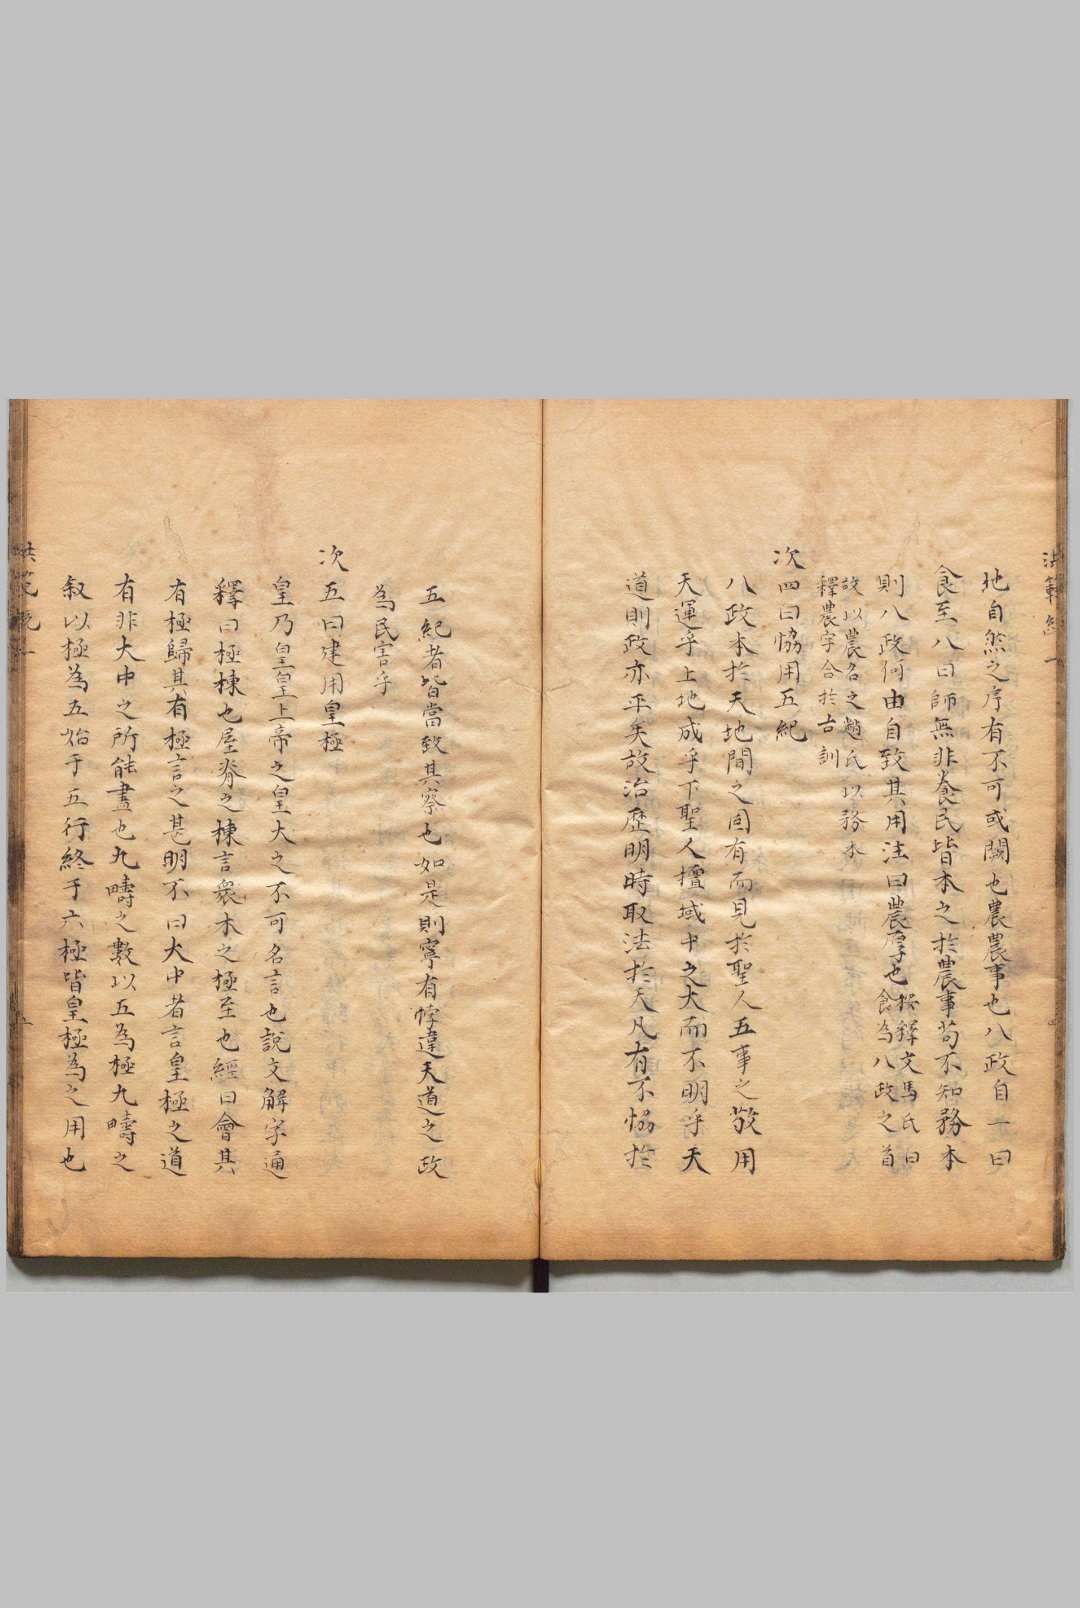 地自然之序有不可或闕也農農事也八政自一曰
食至八曰師無非養民皆本之於農事苟不知務本
則八政何由自致其用注曰農厚也按釋文馬氏曰
食為八政之首
故以農名之趙氏以務本
釋農字合於古訓
次四曰恊用五紀
八政本於天地間之固有而見於聖人五事之敬用
天運乎上地成乎下聖人擅域中之大而不明乎天
道則政亦乖矣故治歷明時取法於天凡有不恊於
五紀者皆當致其察也如是則寧有悖違天道之政
為民害乎
次五曰建用皇極
皇乃皇皇上帝之皇大之不可名言也說文解字通
釋曰極棟也屋脊之棟言衆木之極至也經曰會其
有極歸其有極言之甚明不曰大中者言皇極之道
有非大中之所能盡也九疇之數以五為極九疇之
叙以極為五始于五行終于六極皆皇極為之用也